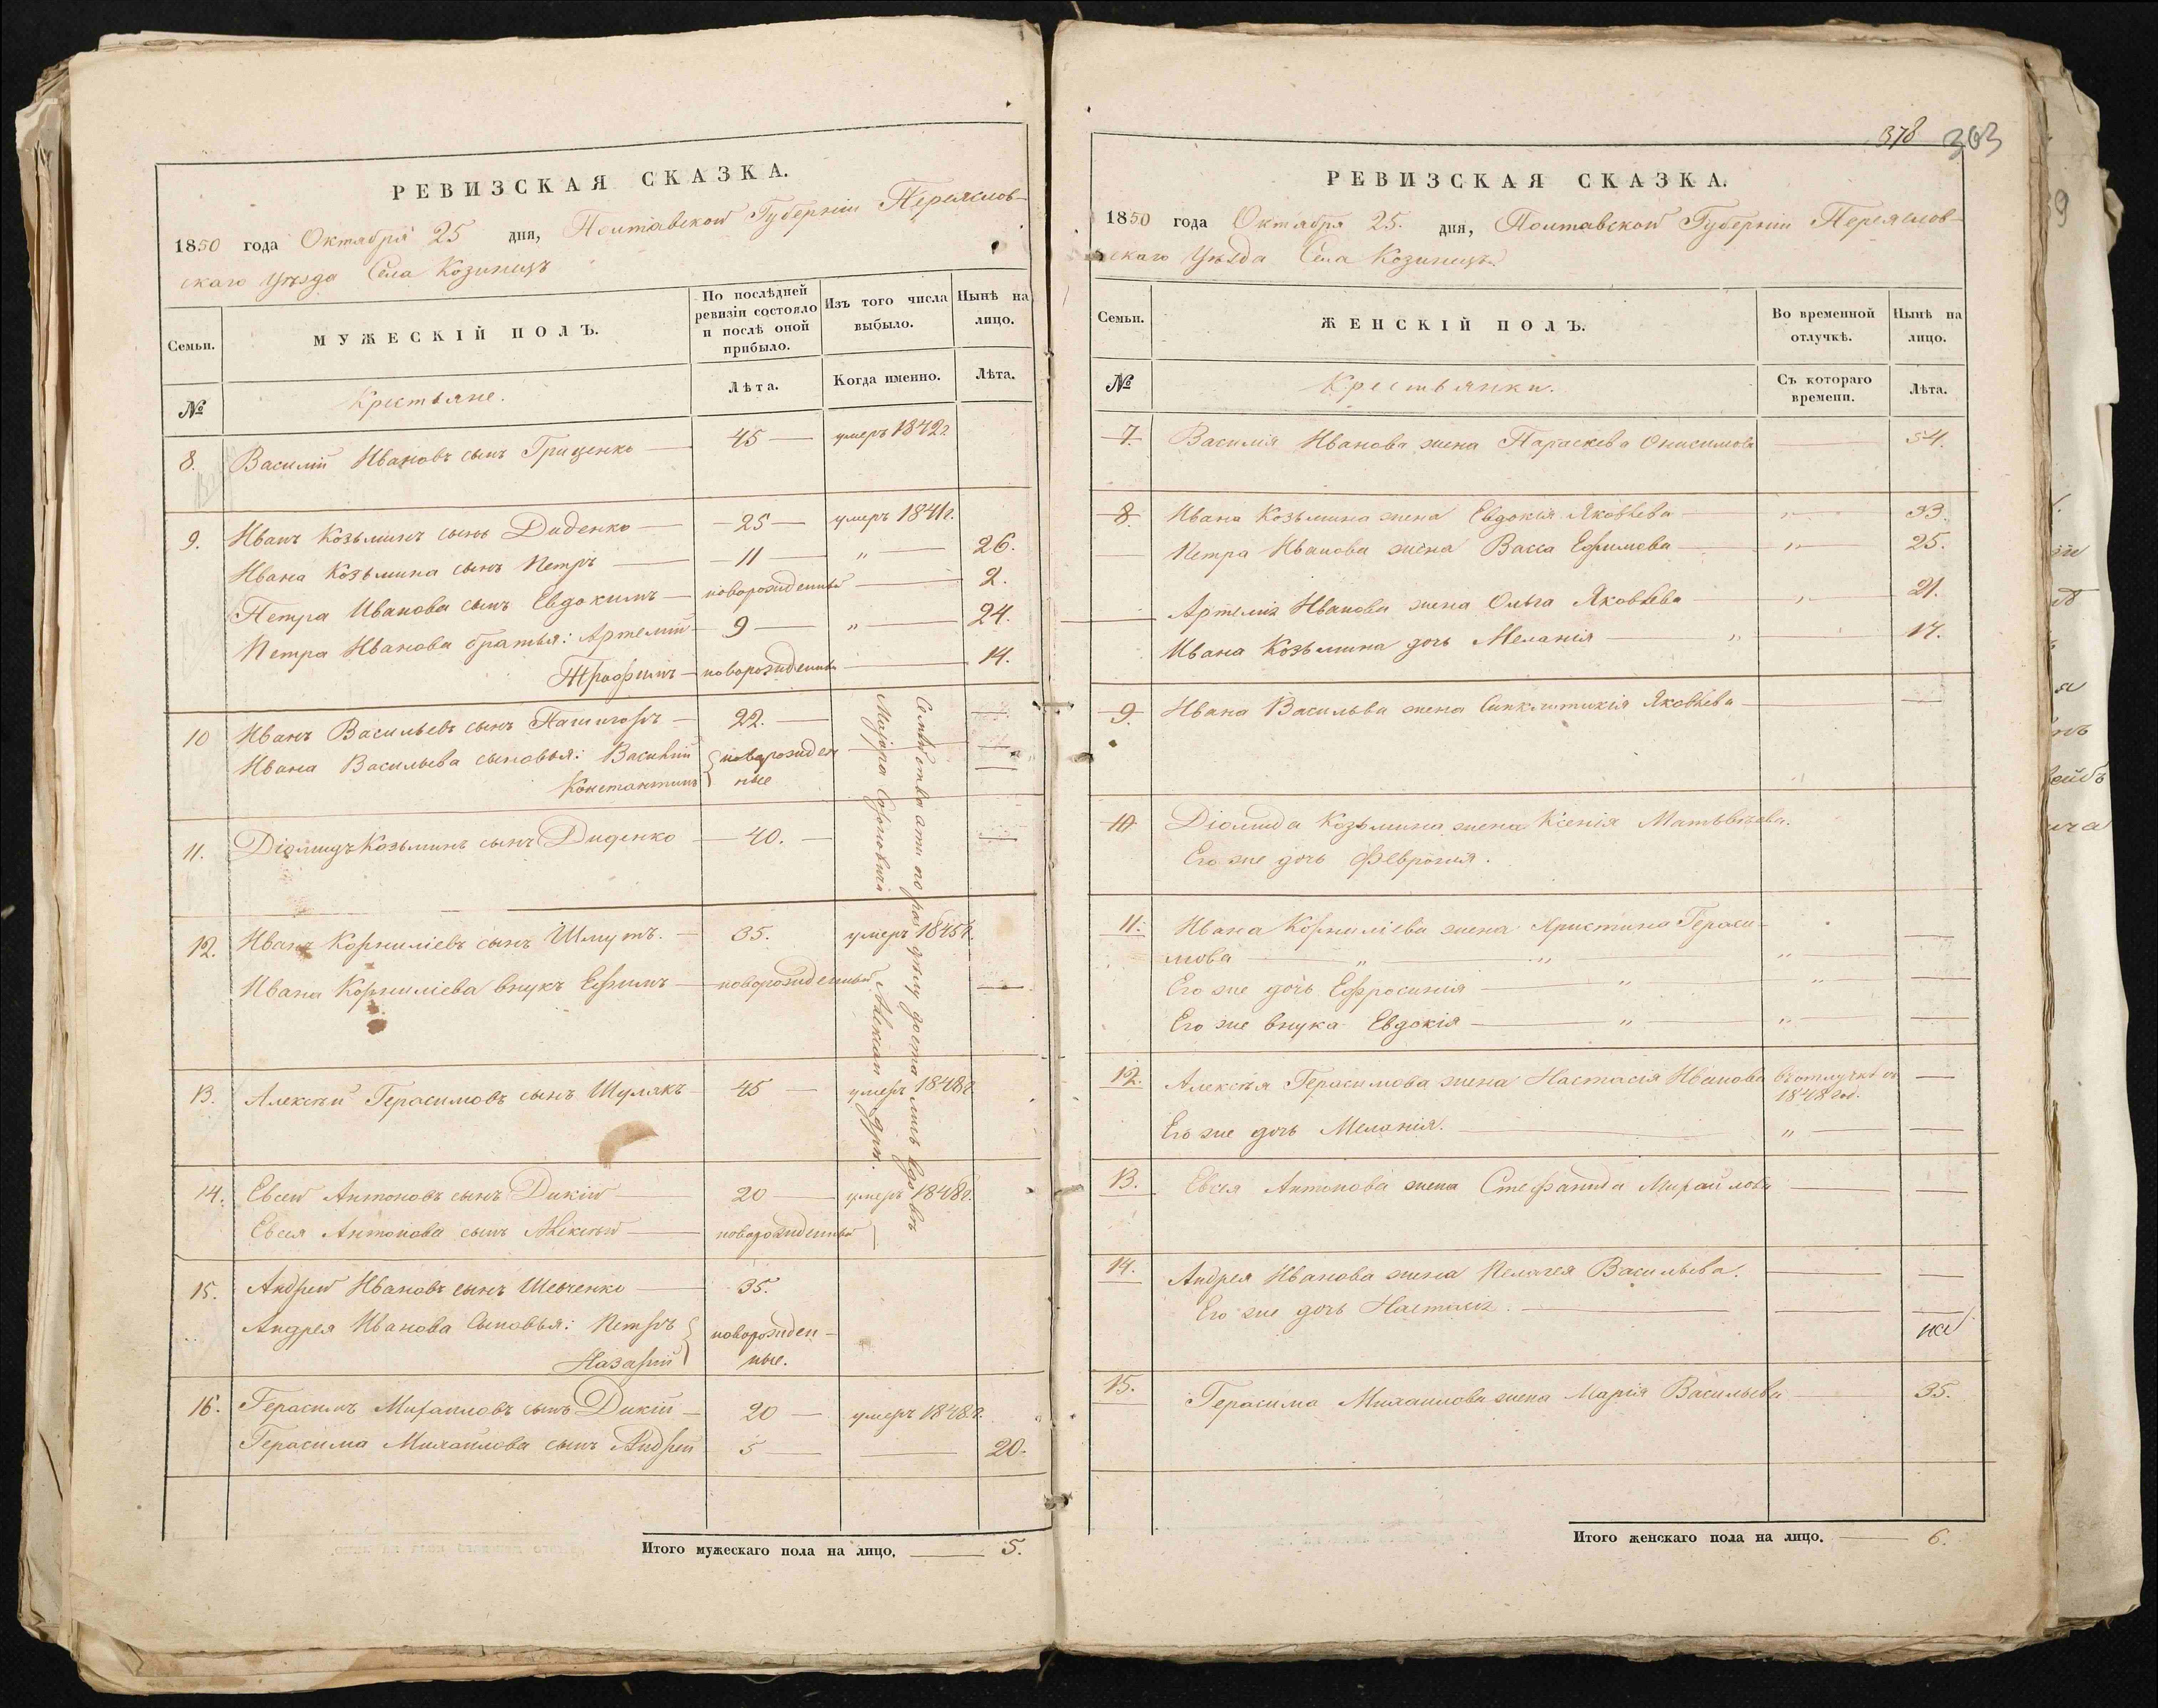 РЕВИЗСКАЯ СКАЗКА.
1850 года Октября 25 дня, Полтавской Губерніи Переяслов-
скаго Уѣзда Села Козинецъ
Семьи.
МУЖЕСКІЙ ПОЛЪ.
По послѣдней ревизіи состояло и послѣ оной прибыло.
Изъ того числа выбыло.
Нынѣ на лицо.
№
Крестьяне.
Лѣта.
Когда именно.
Лѣта.
8. Василій Ивановъ сынъ Гриценко 45 умеръ 1842г.
9. Иванъ Козьминъ сынъ Диденко 25 умеръ 1841г.
Ивана Козьмина сынъ Петръ 11 " 26.
Петра Иванова сынъ Евдокимъ новорожденный 2.
Петра Иванова братья: Артемій 9 " 24.
Трофимъ новорожденный 14.
10 Иванъ Васильевъ сынъ 22.
Ивана Васильева сыновья: Василій новорожден
Константинъ ные
11. Діомидъ Козьминъ сынъ Диденко 40.
12. Иванъ Корниліевъ сынъ Шмутъ. 35. умеръ 1845г.
Ивана Корниліева внукъ Ефимъ новорожденный
13. Алексѣй Герасимовъ сынъ Шулякъ 45 умеръ 1848г.
14. Евсей Антоновъ сынъ Дикій 20 умеръ 1848г.
Евсея Антонова сынъ Алексѣй новорожденный
15. Андрей Ивановъ сынъ Шевченко 35.
Андрея Иванова Сыновья: Петръ новорожден-
Назарій ные.
16. Герасимъ Михайловъ сынъ Дикій 20 умеръ 1848г.
Герасима Михайлова сынъ Андрей 5 20.
по раздѣлу достались
Маіора
Итого мужескаго пола на лицо. 5.
378 303
РЕВИЗСКАЯ СКАЗКА.
1850 года Октября 25. дня, Полтавской Губерніи Переяслов-
скаго Уѣзда Села Козинецъ.
Семьи.
ЖЕНСКІЙ ПОЛЪ.
Во временной отлучкѣ.
Нынѣ на лицо.
№
Крестьянки.
Съ котораго времени.
Лѣта.
7. Василія Иванова жена Параскева Онисимова 54.
8. Ивана Козьмина жена Евдокія Яковлева " 33.
Петра Иванова жена Васса Ефимова " 25.
Артемія Иванова жена Ольга Яковлева " 21.
Ивана Козьмина дочь Меланія " 17.
9. Ивана Васильва жена Синклитикія Яковлева
10 Діомида Козьмина жена Ксенія Матвѣева.
Его же дочь Февронія.
11. Ивана Корниліева жена Христина Гераси-
мова " " "
Его же дочь Ефросинія " "
Его же внука Евдокія " "
12. Алексѣя Герасимова жена Настасія Иванова въ отлучкѣ съ
1848 год.
Его же дочь Меланія. "
13. Евсея Антонова жена Стефанида Михайлова
14. Андрея Иванова жена Пелагея Васильева.
Его же дочь Настасія.
15. Герасима Михайлова жена Марія Васильева 35.
Итого женскаго пола на лицо. 6.